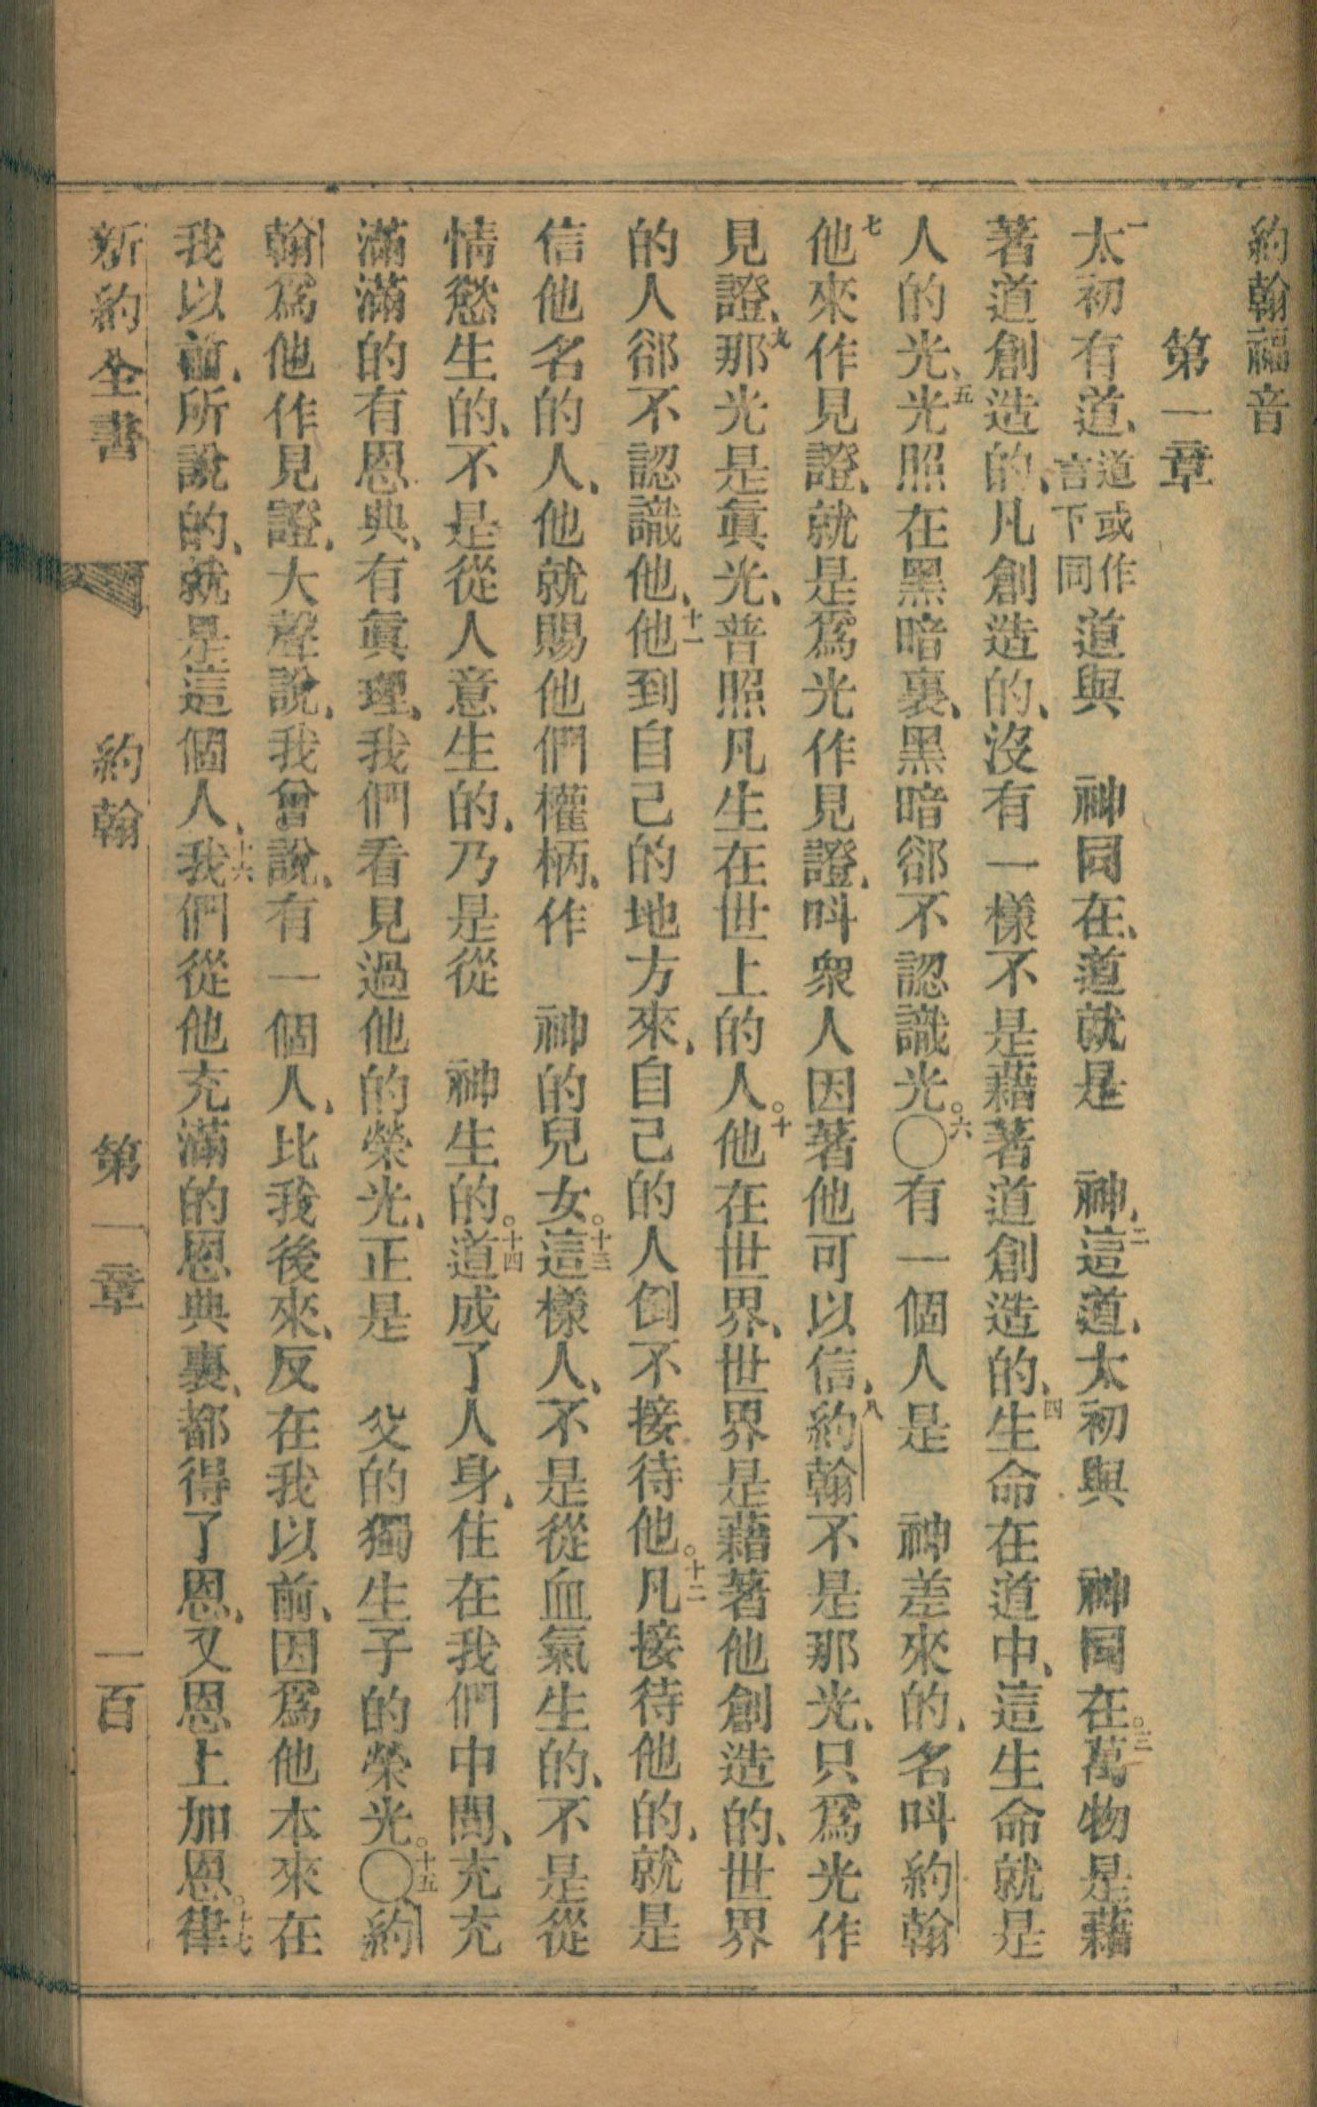 約翰福音
第一章
一太初有道、道或作言下同道與　神同在、道就是　神、二這道、太初與　神同在。三萬物是藉
著道創造的、凡創造的、沒有一樣不是藉著道創造的、四生命在道中、這生命就是
人的光、五光照在黑暗裏、黑暗郤不認識光。〇六有一個人是　神差來的、名叫約翰
七他來作見證、就是爲光作見證、叫衆人因著他可以信、八約翰不是那光、只爲光作
見證、九那光是眞光、普照凡生在世上的人。十他在世界、世界是藉著他創造的、世界
的人郤不認識他、十一他到自己的地方來、自己的人倒不接待他。十二凡接待他的、就是
信他名的人、他就賜他們權柄、作　神的兒女。十三這樣人、不是從血氣生的、不是從
情慾生的、不是從人意生的、乃是從　神生的。十四道成了人身、住在我們中間、充充
滿滿的有恩典、有眞理、我們看見過他的榮光、正是　父的獨生子的榮光。〇十五約
翰爲他作見證、大聲說、我曾說、有一個人、比我後來、反在我以前、因爲他本來在
我以前、所說的、就是這個人、十六我們從他充滿的恩典裏、都得了恩、又恩上加恩。十七律
新約全書　約翰　第一章　一百